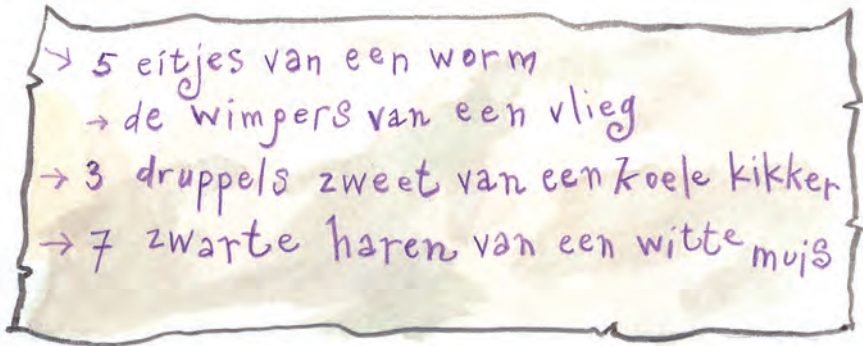 → 5 eitjes van een worm
→ de wimpers van een vlieg
→ 3 druppels zweet van een koele kikker
→ 7 zwarte haren van een witte muis